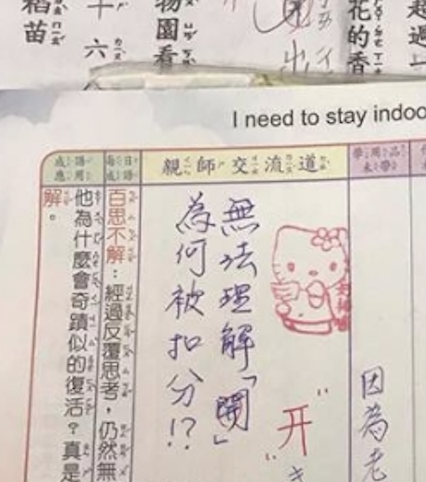 稻苗
十六
物園看
花的香
超過一
I need to stay indoo
親師交流道
無法理解「開」
為何被扣分!?
"开"
因為老
每日一成語
百思不解：經過反覆思考，仍然無
成語應用
他為什麼會奇蹟似的復活？真是
解。
學用品未帶